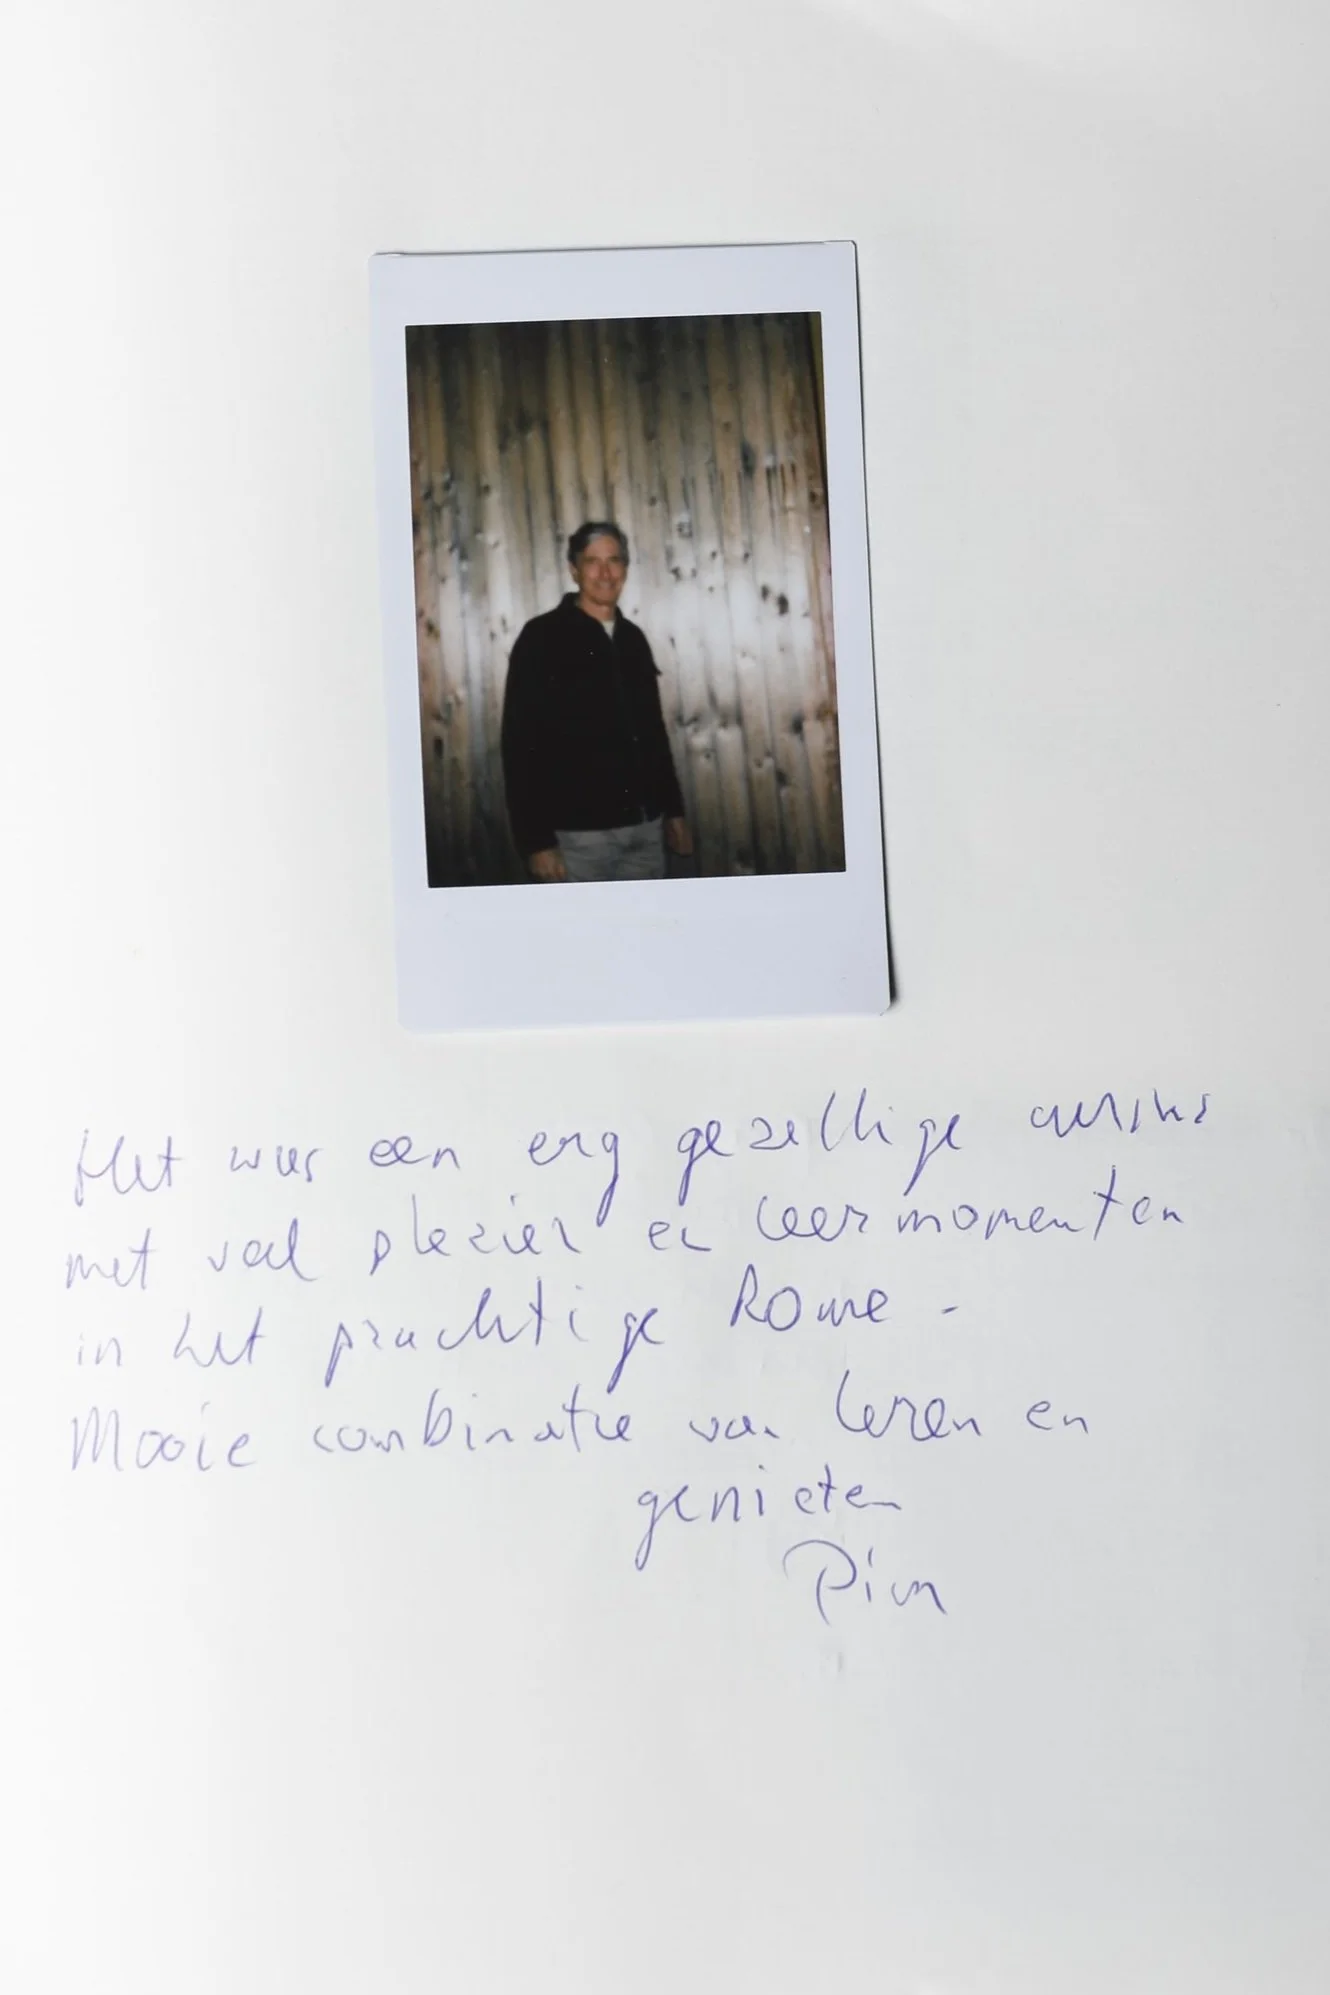 Het was een erg gezellige cursus
met veel plezier en leermomenten
in het prachtige Rome -
Mooie combinatie van leren en
genieten
Pim